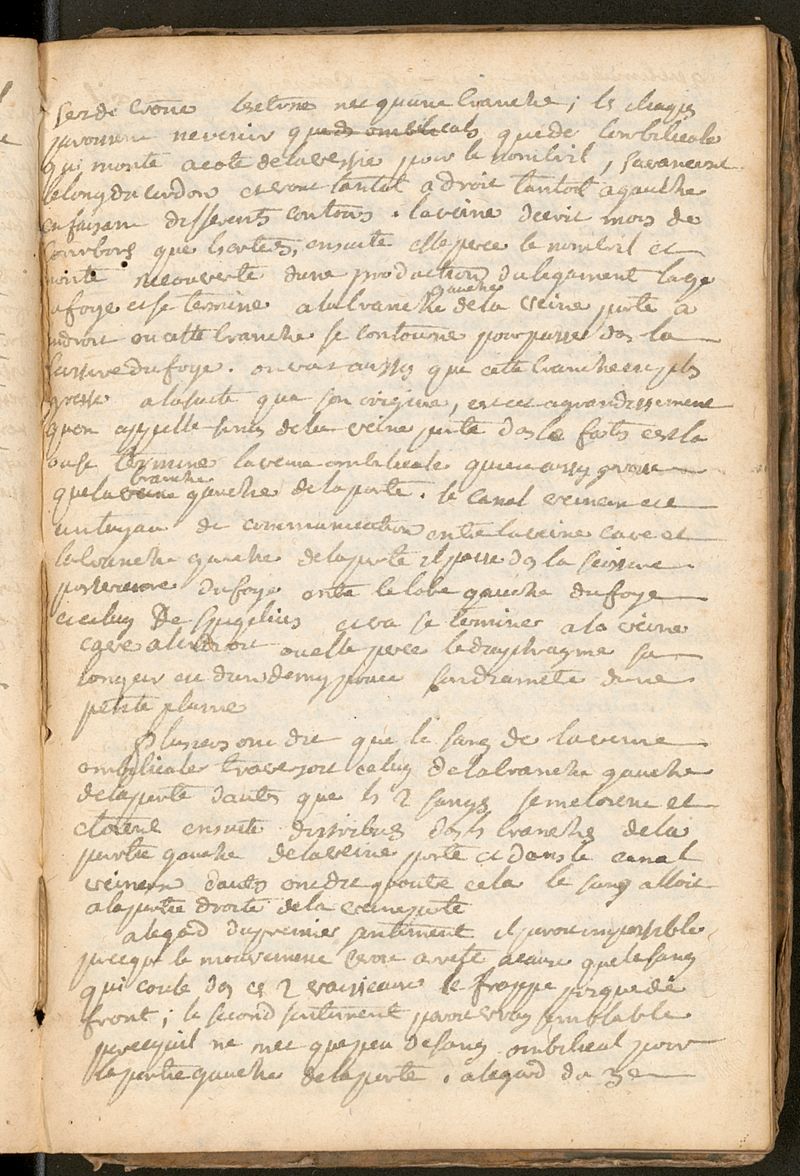 nec quune branche ;
paroissent nevenir que de lombilicale
qui monte a coté delavessie pour le nombril , savancent
lelong du cordon et vont tantot a droit tantot agauche
en faisant differents contours . laveine decrit mois de
que lartere, ensuite elle perce le nombril et
monte recouverte dune production duligament large
afoye et se termine a labranche gauche dela veine porte a
landroit ou cette branche se contourne pour passer das la
scissure du foye . on voit aussy que cete branche est plus
grosse alasuite que son origine, est cet agrandissement
quon appelle sinus dela veine porte das le fœtus cest la
ou se termine laveine ombilicale qui est aussy grosse
que la veine branche gauche dela porte . le canal veineux est
un tuyau de communication entre laveine cave et
labranche gauche delaporte il passe das la scissure
posterieure du foye entre le lobe gauche du foye
et celuy De Spigelius et va se terminer a la veine
cave alendroit ou elle perce le diaphragme sa
longeur est dun demy pouce son diametre dune
petite plume
Plusieurs ont dit que le sang de laveine
ombilicale traversoit celuy delabranche gauche
delaporte dautes que ls 2 sangs semeloient et
etoient ensuite distribues das ls branches dela
partie gauche delaveine porte et dans le canal
veineux dautes ont dit quoute cela le sang alloit
alapartie droite dela veine porte
alegard du premier sentiment il paroit impossible
parceque le mouvement seroit aresté acause que le sang
qui coule das cs 2 vaisseaux se frappe presque de
front ; le second sentiment paroit vray semblable
parcequil ne met que peu desang ombilical pour
la partie gauche dela porte . alegard du 3e